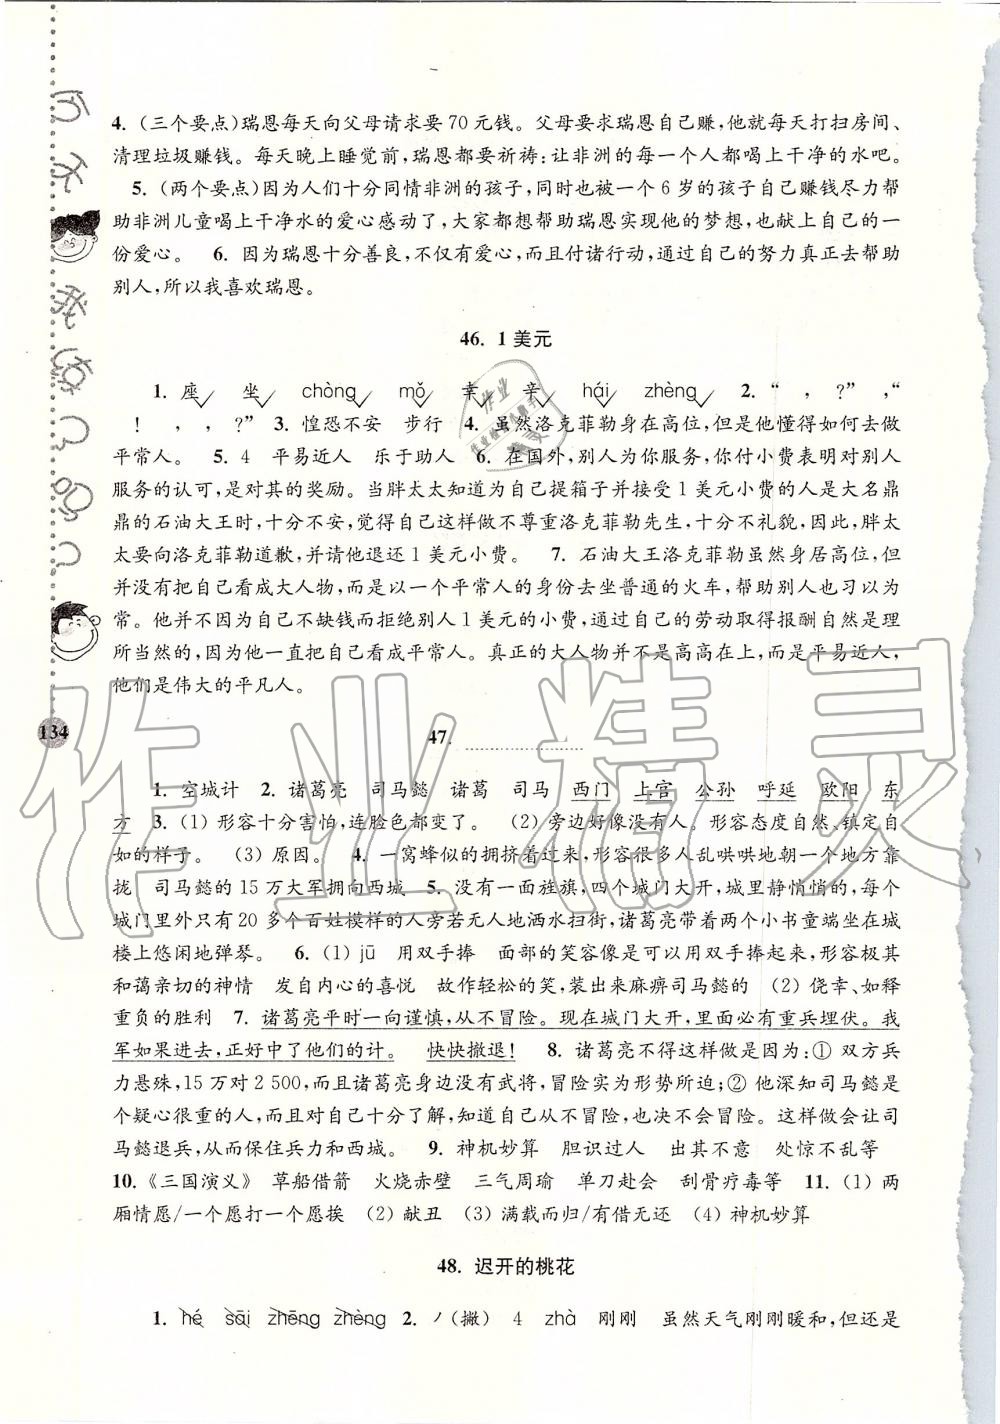 4. (三个要点)瑞恩每天向父母请求要 70 元钱。父母要求瑞恩自己赚,他就每天打扫房间、
清理垃圾赚钱。每天晚上睡觉前,瑞恩都要祈祷:让非洲的每一个人都喝上干净的水吧。
5. (两个要点)因为人们十分同情非洲的孩子,同时也被一个 6 岁的孩子自己赚钱尽力帮
助非洲儿童喝上干净水的爱心感动了,大家都想帮助瑞恩实现他的梦想,也献上自己的一
份爱心。 6. 因为瑞恩十分善良,不仅有爱心,而且付诸行动,通过自己的努力真正去帮助
别人,所以我喜欢瑞恩。
46. 1 美元
1. 座 坐 chòng mǒ 幸 辛 hái zhèng 2. “ , ?” ,“
! , , ?” 3. 惶恐不安 步行 4. 虽然洛克菲勒身在高位,但是他懂得如何去做
平常人。 5. 4 平易近人 乐于助人 6. 在国外,别人为你服务,你付小费表明对别人
服务的认可,是对其的奖励。当胖太太知道为自己提箱子并接受 1 美元小费的人是大名鼎
鼎的石油大王时,十分不安,觉得自己这样做不尊重洛克菲勒先生,十分不礼貌,因此,胖太
太要向洛克菲勒道歉,并请他退还 1 美元小费。 7. 石油大王洛克菲勒虽然身居高位,但
并没有把自己看成大人物,而是以一个平常人的身份去坐普通的火车,帮助别人也习以为
常。他并不因为自己不缺钱而拒绝别人 1 美元的小费,通过自己的劳动取得报酬自然是理
所当然的,因为他一直把自己看成平常人。真正的大人物并不是高高在上,而是平易近人,
他们是伟大的平凡人。
134
47.
1. 空城计 2. 诸葛亮 司马懿 诸葛 司马 西门 上官 公孙 呼延 欧阳 东
方 3. (1) 形容十分害怕,连脸色都变了。 (2) 旁边好像没有人。形容态度自然、镇定自
如的样子。 (3) 原因。 4. 一窝蜂似的拥挤着过来,形容很多人乱哄哄地朝一个地方靠
拢 司马懿的 15 万大军拥向西城 5. 没有一面旌旗,四个城门大开,城里静悄悄的,每个
城门里外只有 20 多个百姓模样的人旁若无人地洒水扫街,诸葛亮带着两个小书童端坐在城
楼上悠闲地弹琴。 6. (1) jū 用双手捧 面部的笑容像是可以用双手捧起来,形容极其
和蔼亲切的神情 发自内心的喜悦 故作轻松的笑,装出来麻痹司马懿的 (2) 侥幸、如释
重负的胜利 7. 诸葛亮平时一向谨慎,从不冒险。现在城门大开,里面必有重兵埋伏。我
军如果进去,正好中了他们的计。 快快撤退! 8. 诸葛亮不得这样做是因为:① 双方兵
力悬殊,15 万对 2 500,而且诸葛亮身边没有武将,冒险实为形势所迫;② 他深知司马懿是
个疑心很重的人,而且对自己十分了解,知道自己从不冒险,也决不会冒险。这样做会让司
马懿退兵,从而保住兵力和西城。 9. 神机妙算 胆识过人 出其不意 处惊不乱等
10.《三国演义》 草船借箭 火烧赤壁 三气周瑜 单刀赴会 刮骨疗毒等 11. (1) 两
厢情愿/一个愿打一个愿挨 (2) 献丑 (3) 满载而归/有借无还 (4) 神机妙算
48. 迟开的桃花
1. hé sāi zhēng zhèng 2. 丿(撇) 4 zhà 刚刚 虽然天气刚刚暖和,但还是
作业精灵